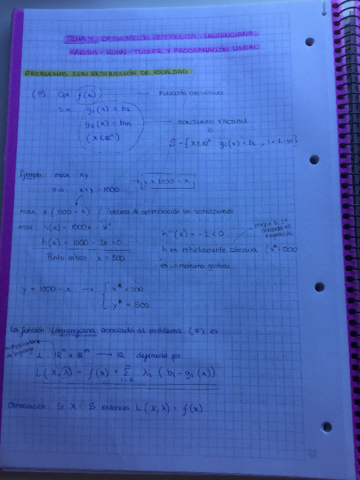 TEMA 4: OPTIMIZACIÓN RESTRINGIDA: LAGRANGIANA,
KARUSH-KUHN-TUCKER Y PROGRAMACIÓN LINEAL
PROBLEMAS CON RESTRICCIÓN DE IGUALDAD
(P) Opt f(x) → FUNCIÓN OBJETIVO
s.a. g₁(x) = b₁
gₘ(x) = bₘ → CONJUNTO FACTIBLE
(x ∈ ℝⁿ)
S = {x ∈ ℝⁿ gᵢ(x) = bᵢ, i = 1...m}
Ejemplo: max xy
s.a. x+y = 1000
y = 1000 - x
max x(1000 - x) problema de optimización sin restricciones
max h(x) = 1000x - x²
h'(x) = 1000 - 2x = 0
Punto crítico: x = 500
h''(x) = -2 < 0
h es estrictamente cóncava x* = 500
es un máximo global
y = 1000 - x → { x* = 500
y* = 500
La función lagrangiana asociada al problema (P) es
L: ℝⁿ × ℝᵐ → ℝ definida por
L(x, λ) = f(x) + Σ λᵢ (bᵢ - gᵢ(x))
Observación: Si x ∈ S entonces L(x, λ) = f(x)